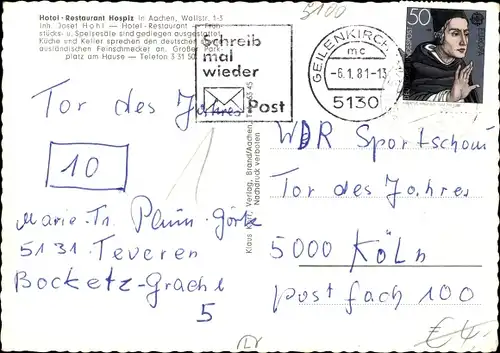 5100
Hotel-Restaurant Hospiz in Aachen, Wallstr. 1-3
Inh. Josef Hohl — Hotel-Restaurant — Früh-
stücks- u. Speisesäle sind gediegen ausgestattet.
Küche und Keller sprechen den deutschen
ausländischen Feinschmecker an. Großer Park-
platz am Hause — Telefon 3 31 50
Schreib
mal
wieder
Post
GEILENKIRCHEN
mc
-6.1.81-13
5130
50
Tor des Jahres
10
Marie-Th. Plum-Görtz
5131 Teveren
Bocketz-Gracht
5
Verlag, Brand/Aachen,
Nachdruck verboten
WDR Sportschau
Tor des Jahres
5000 KÖLN
postfach 100
€ 4,-